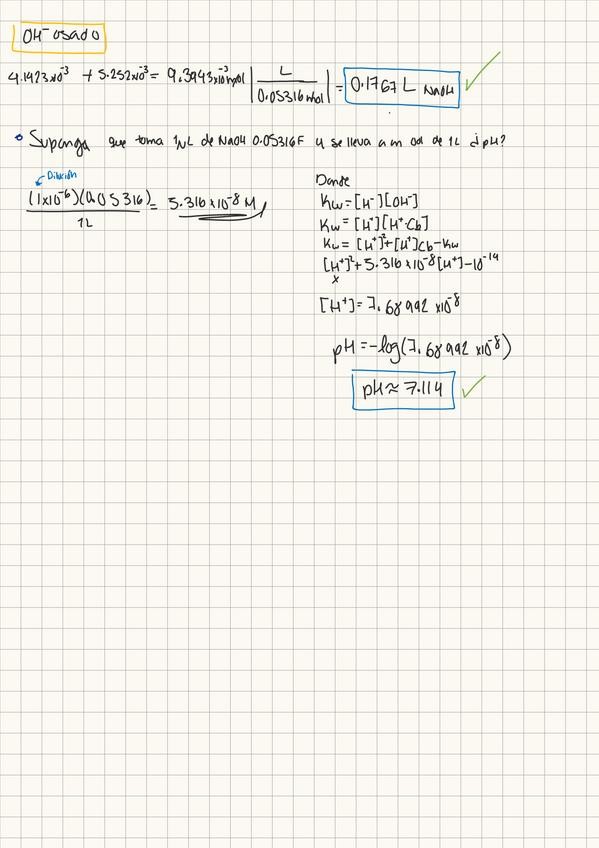 OH⁻ usado
4.1423x10⁻³ + 5.252x10⁻³ = 9.3943x10⁻³ mol | L / 0.05316 mol | = 0.1767 L NaOH
• Suponga que toma 1μL de NaOH 0.05316F y se lleva a un vol de 1L ¿pH?
Dilución
(1x10⁻⁶)(0.05316) / 1L = 5.316 x10⁻⁸ M
Donde
Kw = [H⁻][OH⁻]
Kw = [H⁺][H⁺·Cb]
Kw = [H⁺]²+[H⁺]Cb-Kw
[H⁺]² + 5.316 x10⁻⁸[H⁺] - 10⁻¹⁴
x
[H⁺] = 7.68992 x10⁻⁸
pH = -log(7.68992 x10⁻⁸)
pH ≈ 7.114